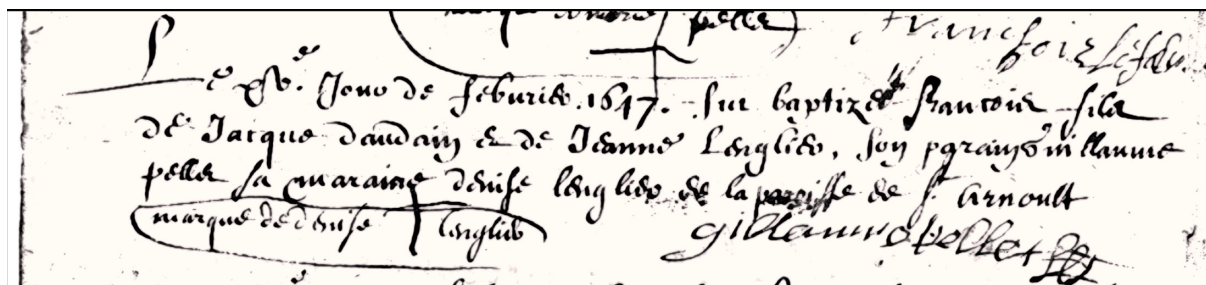 pelle
francois Lefeb
Le xv.e Jour de feburier. 1647. fut baptize francois fils
de Jacque daudain et de Jeanne Lenglier, son parain Guillaume
pellet sa maraine denise lenglier de la paroisse de st Arnoult
marque de denise lenglier
gillaume pellet